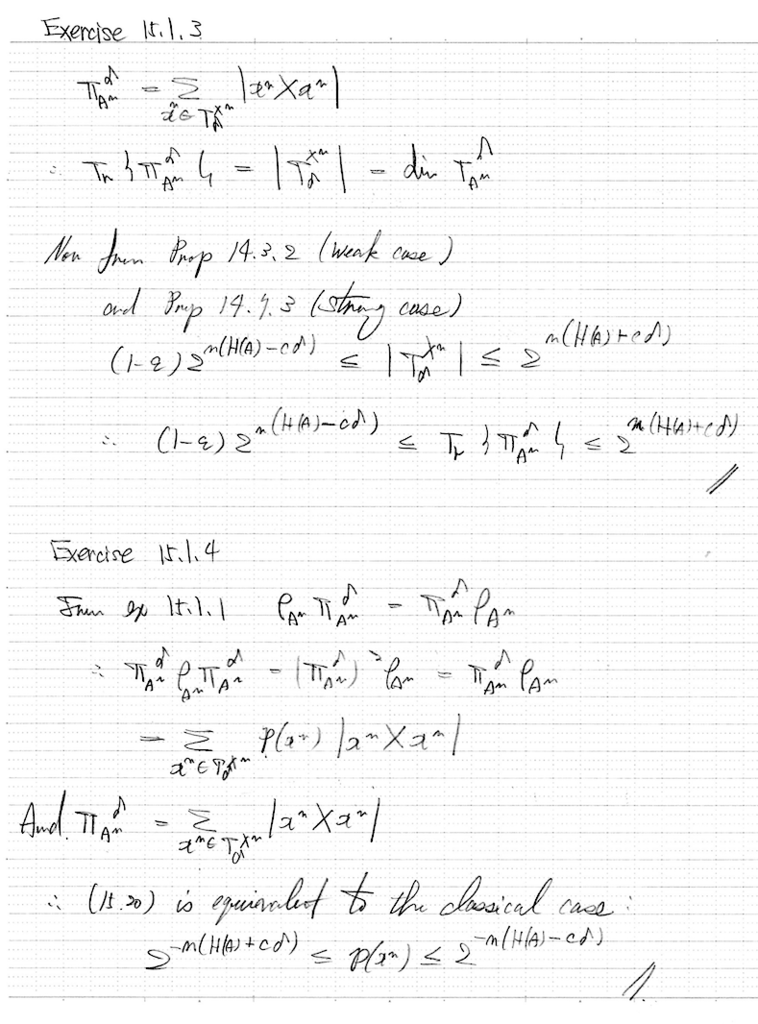 Exercise 15.1.3
Π_{A^n}^δ = Σ_{x^n ∈ T_δ^{X^n}} |x^n⟩⟨x^n|
∴ Tr{Π_{A^n}^δ} = |T_δ^{X^n}| = dim T_{A^n}^δ
Now from Prop 14.3.2 (weak case)
and Prop 14.7.3 (strong case)
(1-ε) 2^{n(H(A)-cδ)} ≤ |T_δ^{X^n}| ≤ 2^{n(H(A)+cδ)}
∴ (1-ε) 2^{n(H(A)-cδ)} ≤ Tr{Π_{A^n}^δ} ≤ 2^{n(H(A)+cδ)} //
Exercise 15.1.4
From ex 15.1.1 ρ_{A^n} Π_{A^n}^δ = Π_{A^n}^δ ρ_{A^n}
∴ Π_{A^n}^δ ρ_{A^n} Π_{A^n}^δ = (Π_{A^n}^δ)^2 ρ_{A^n} = Π_{A^n}^δ ρ_{A^n}
= Σ_{x^n ∈ T_δ^{X^n}} p(x^n) |x^n⟩⟨x^n|
And. Π_{A^n}^δ = Σ_{x^n ∈ T_δ^{X^n}} |x^n⟩⟨x^n|
∴ (15.20) is equivalent to the classical case:
2^{-n(H(A)+cδ)} ≤ p(x^n) ≤ 2^{-n(H(A)-cδ)} //